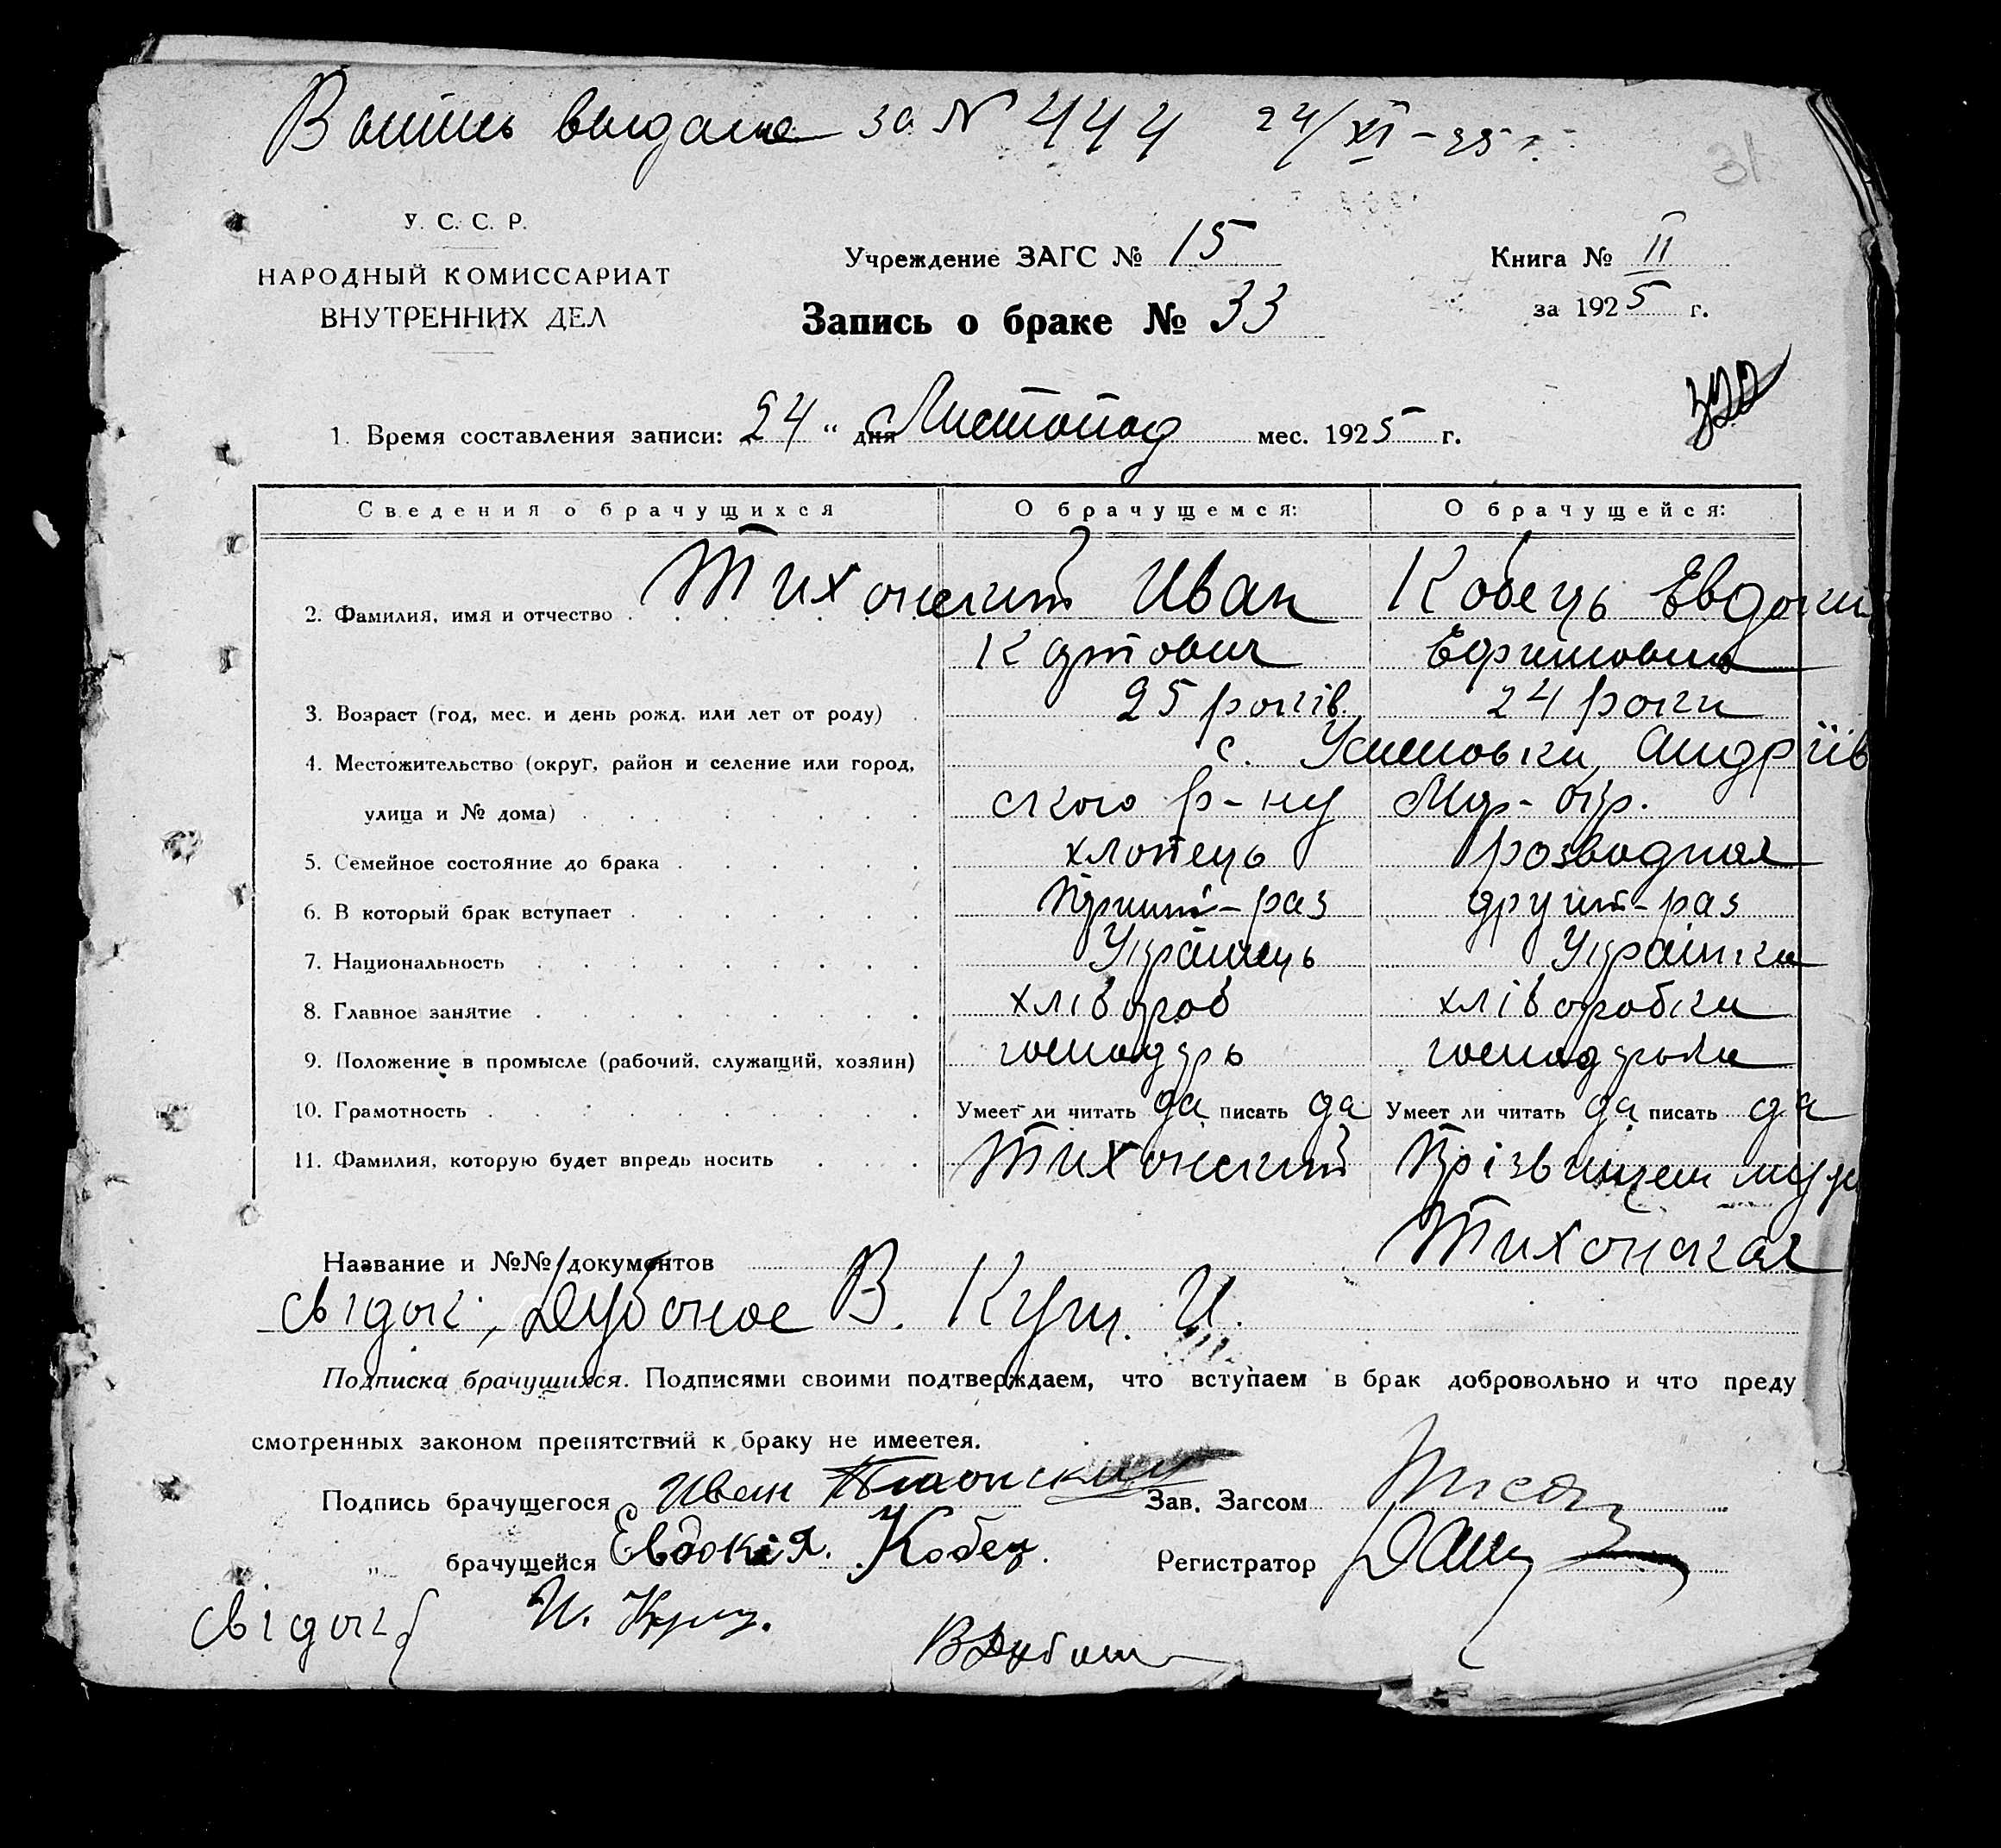 Выпись выдана за № 444 24/XI-25 г.
31
У. С. С. Р.
НАРОДНЫЙ КОМИССАРИАТ
ВНУТРЕННИХ ДЕЛ
Учреждение ЗАГС № 15
Запись о браке № 33
Книга № II
за 1925 г.
1. Время составления записи: 24 " дня Листопад мес. 1925 г.
Сведения о брачущихся О брачущемся: О брачущейся:
2. Фамилия, имя и отчество Тихонский Иван Кобець Евдоки
Ефимовна
3. Возраст (год, мес. и день рожд. или лет от роду) 25 років 24 роки
4. Местожительство (округ, район и селение или город, с. Успеновки, Андріїв
улица и № дома) ского р-ну Мар-окр.
5. Семейное состояние до брака хлопець розводная
6. В который брак вступает перший-раз другий-раз
7. Национальность Українець Українка
8. Главное занятие хлівороб хліворобка
9. Положение в промысле (рабочий, служащий, хозяин) господарь
10. Грамотность Умеет ли читать да писать да Умеет ли читать да писать да
11. Фамилия, которую будет впредь носить Тихонский Прізвищем мужа
Тихонская
Название и №№ документов
свідок: В. Кущ. И.
Подписка брачущихся. Подписями своими подтверждаем, что вступаем в брак добровольно и что преду
смотренных законом препятствий к браку не имеетея.
Подпись брачущегося Иван Тихонский Зав. Загсом
" брачущейся Евдокія. Кобец. Регистратор
свідок И. Кущ.